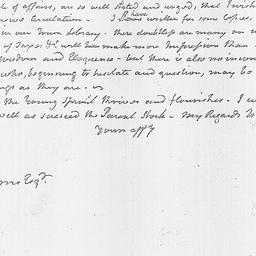 of affairs, are so well stated and urged, that I wish
circulation - I have written for some Copies,
in our Town Library. There doubtless are many on w
of Says. &c. will make more Impression than
Wisdom and Eloquence - but there is also no incon
who, beginning to hesitate and question, may be
as they are.
the Young Sprout thrives and flourishes. I w
well as succeed the Parent Stock - My Regards to
Yours affy
Esqr.